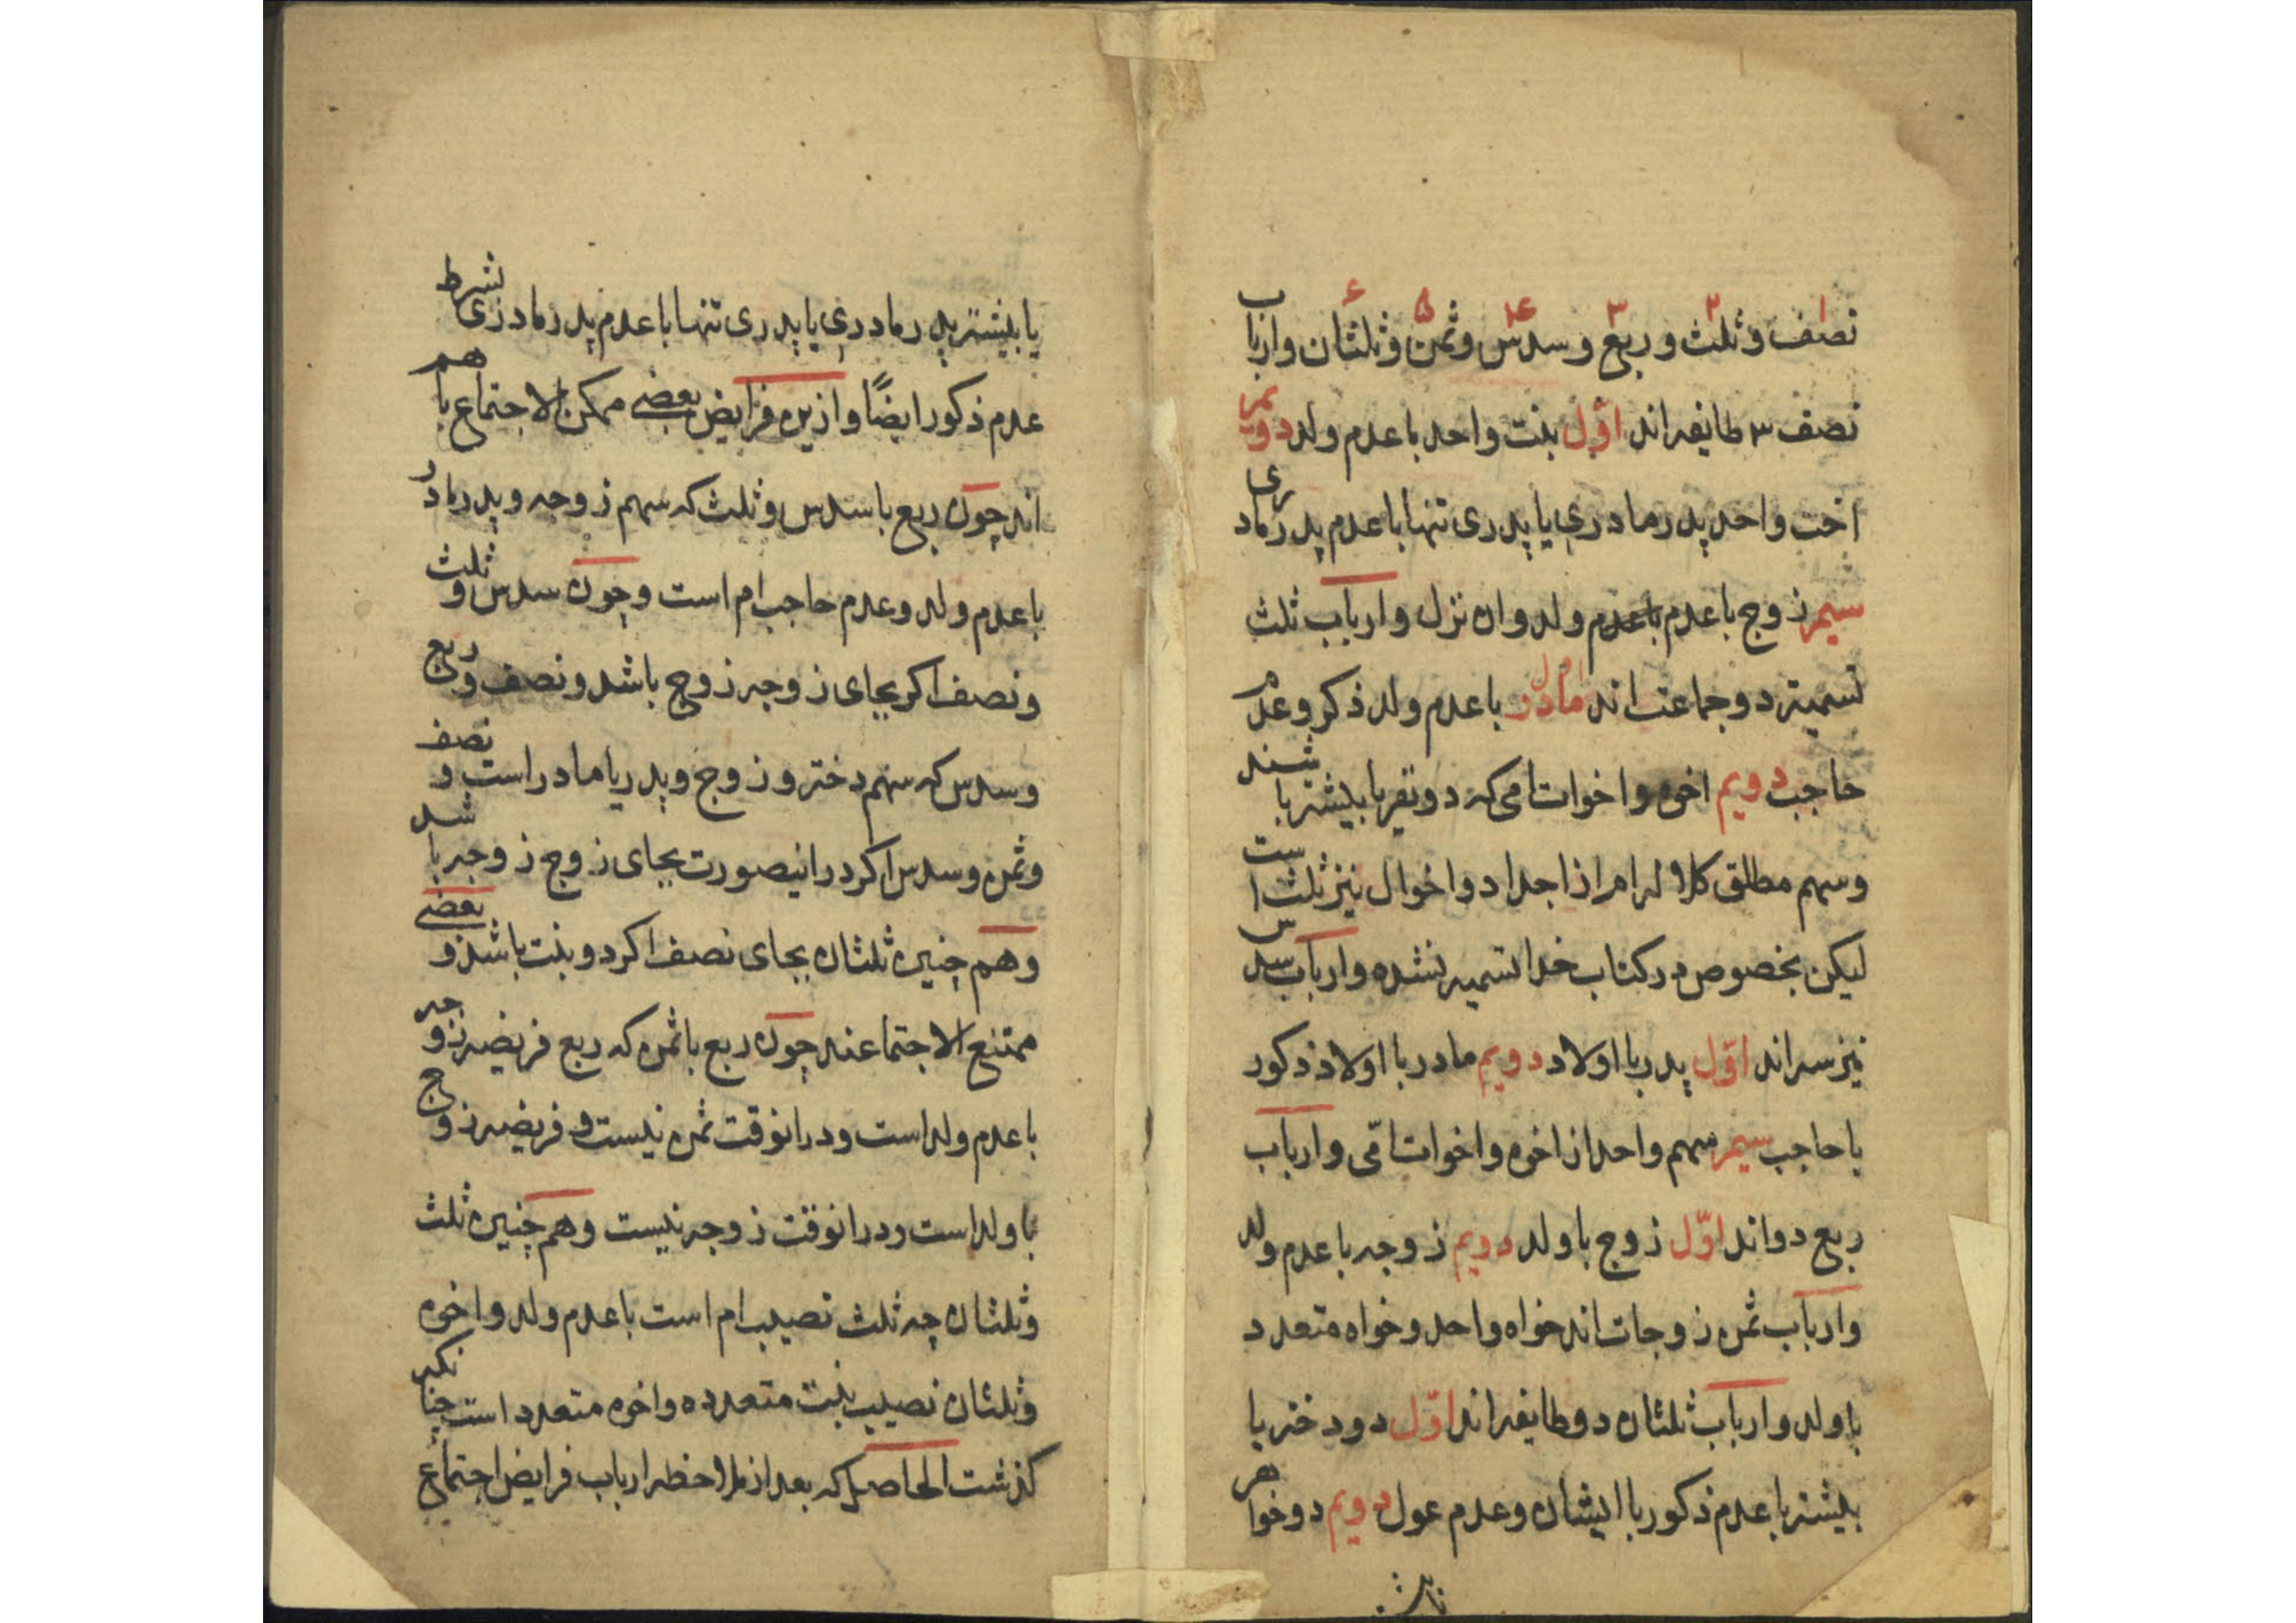 نصف و ثلث و ربع و سدس و ثمن و ثلثان و ارباب
نصف ۳ طایفه اند اوّل بنت واحد با عدم ولد دویم
اخت واحد پدر مادری یا پدری تنها با عدم پدر مادری
سیم زوج با عدم باعدم ولد وان نزل و ارباب ثلث
تسمیته دو جماعت اند اول مادر با عدم ولد ذکر و عدم
حاجب دویم اخوه و اخوات امی که دو نفر یا بیشتر باشند
و سهم مطلق کلاله ام از اجداد و اخوال نیز ثلث است
لیکن بخصوص در کتاب خدا تسمیه نشده و ارباب سدس
نیز سه اند اوّل پدر با اولاد دویم مادر با اولاد ذکور
با حاجب سیم سهم واحد از اخوه و اخوات امّی و ارباب
ربع دو اند اوّل زوج با ولد دویم زوجه با عدم ولد
و ارباب ثمن زوجات اند خواه واحد و خواه متعدد
با ولد و ارباب ثلثان دو طایفه اند اوّل دو دختر یا
بیشتر با عدم ذکور با ایشان و عدم عول دویم دو خواهر
یا بیشتر پدر مادری یا پدری تنها با عدم پدر مادری بشرط
عدم ذکور ایضًا و ازین فرایض بعضی ممکن الاجتماع با هم
اند چون ربع با سدس و ثلث که سهم زوجه و پدر مادر
با عدم ولد و عدم حاجب ام است و چون سدس و ثلث
و نصف اکر بجای زوجه زوج باشد و نصف و ربع
و سدس که سهم دختر و زوج و پدر یا مادر است و نصف
و ثمن و سدس اکر در اینصورت بجای زوج زوجه باشد
و هم چنین ثلثان بجای نصف اکر دو بنت باشد و بعضی
ممتنع الاجتماعند چون ربع با ثمن که ربع فریضه زوجه
با عدم ولد است و در انوقت ثمن نیست و فریضه زوج
با ولد است و در انوقت زوجه نیست و هم چنین ثلث
و ثلثان چه ثلث نصیب ام است با عدم ولد و اخوه
و ثلثان نصیب بنت متعدده و اخوه متعدد است چنانکه
کذشت الحاصل که بعد از ملاحظه ارباب فرایض اجتماع